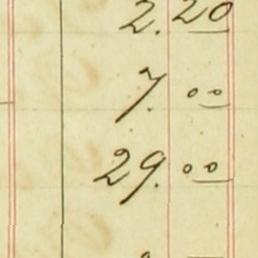 2.20
7.00
29.00